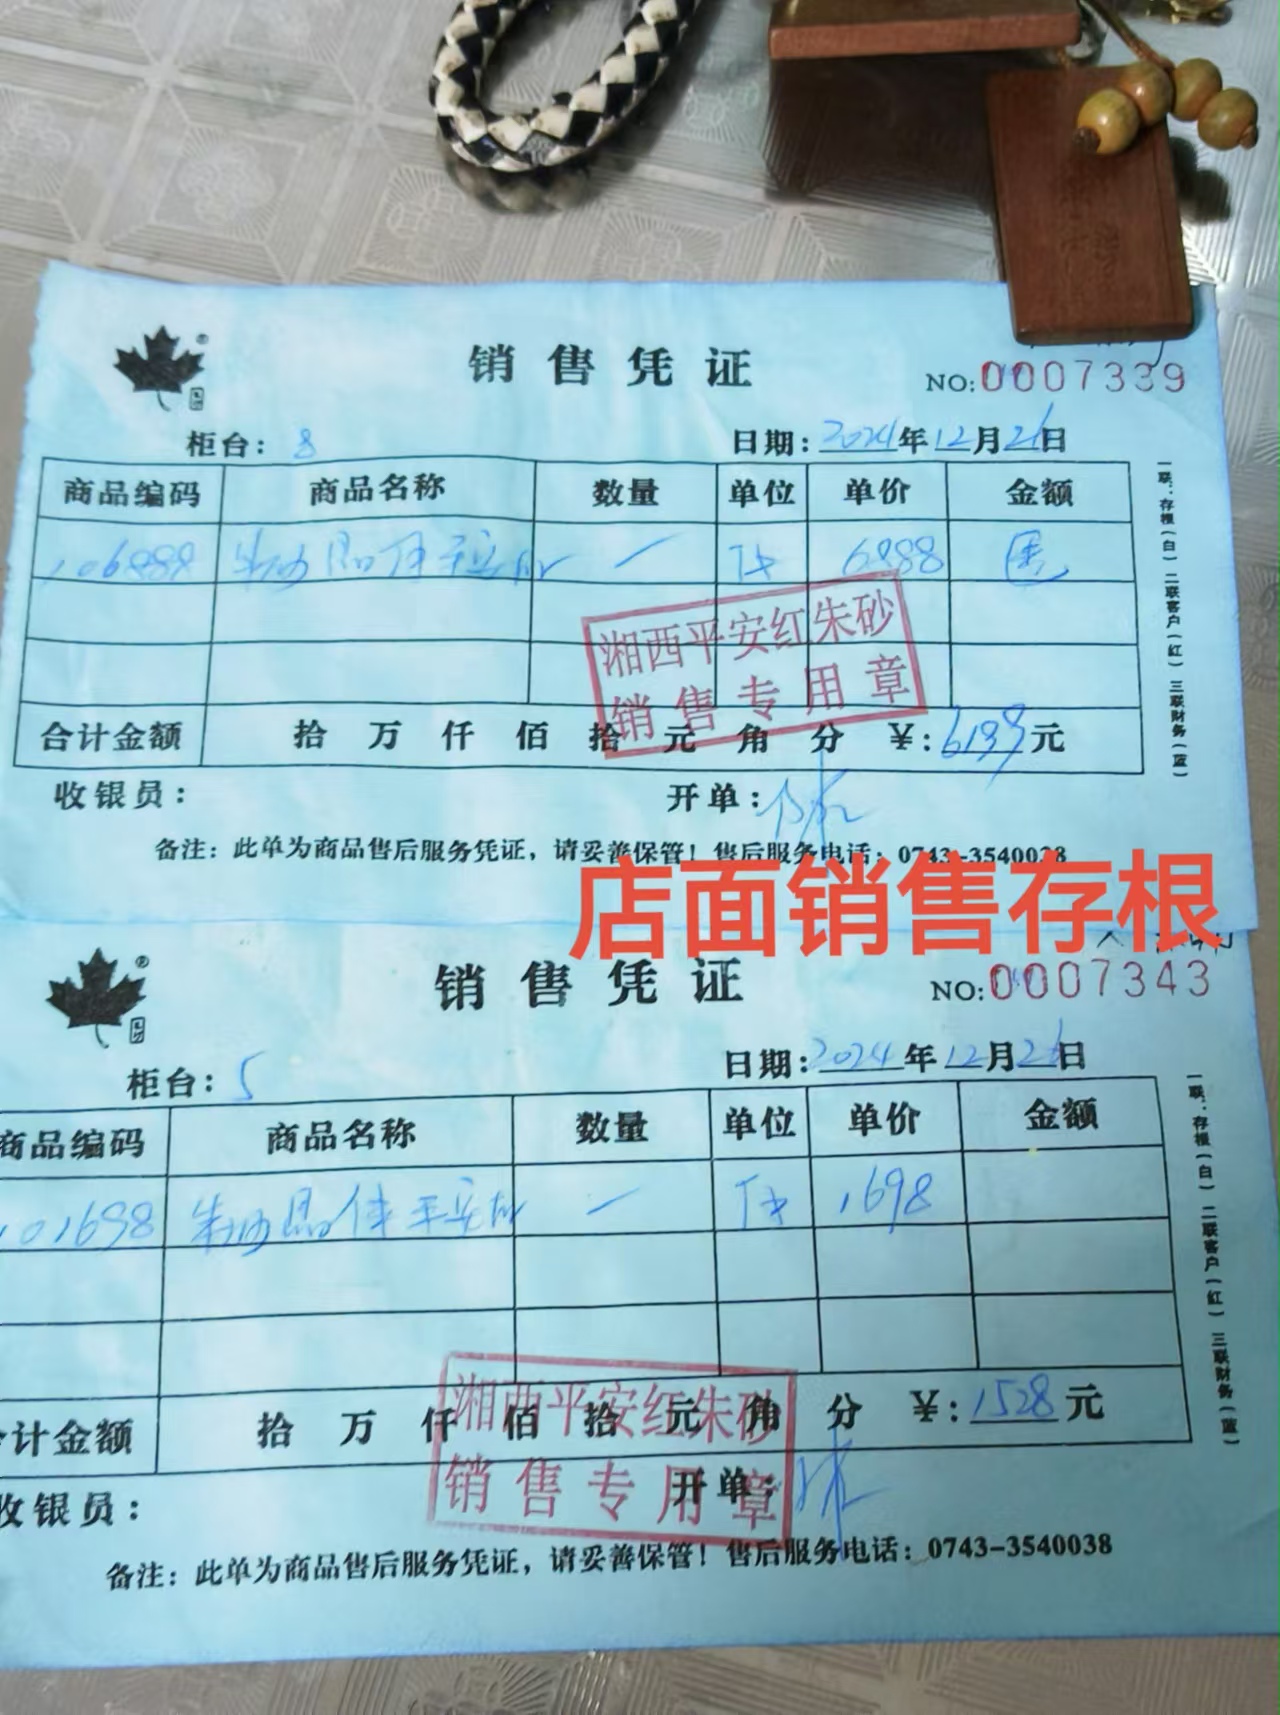 销售凭证
NO:0007339
柜台：8
日期：2024年12月26日
商品编码 商品名称 数量 单位 单价 金额
106888 朱砂晶体平安 一 件 6888
湘西平安红朱砂
销售专用章
合计金额 拾 万 仟 佰 拾 元 角 分 ¥:6199元
收银员： 开单：
备注：此单为商品售后服务凭证，请妥善保管！售后服务电话：0743-3540038
一联：存根（白）二联客户（红）三联财务（蓝）
店面销售存根
销售凭证
NO:0007343
柜台：5
日期：2024年12月26日
商品编码 商品名称 数量 单位 单价 金额
101698 朱砂晶体平安 一 件 1698
合计金额 拾 万 仟 佰 拾 元 角 分 ¥:1528元
湘西平安红朱砂
销售专用章
收银员： 开单：
备注：此单为商品售后服务凭证，请妥善保管！售后服务电话：0743-3540038
一联：存根（白）二联客户（红）三联财务（蓝）